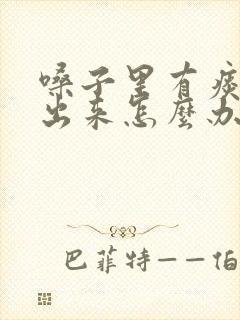 嗓子里有痰
出来怎麼办
巴菲特——伯